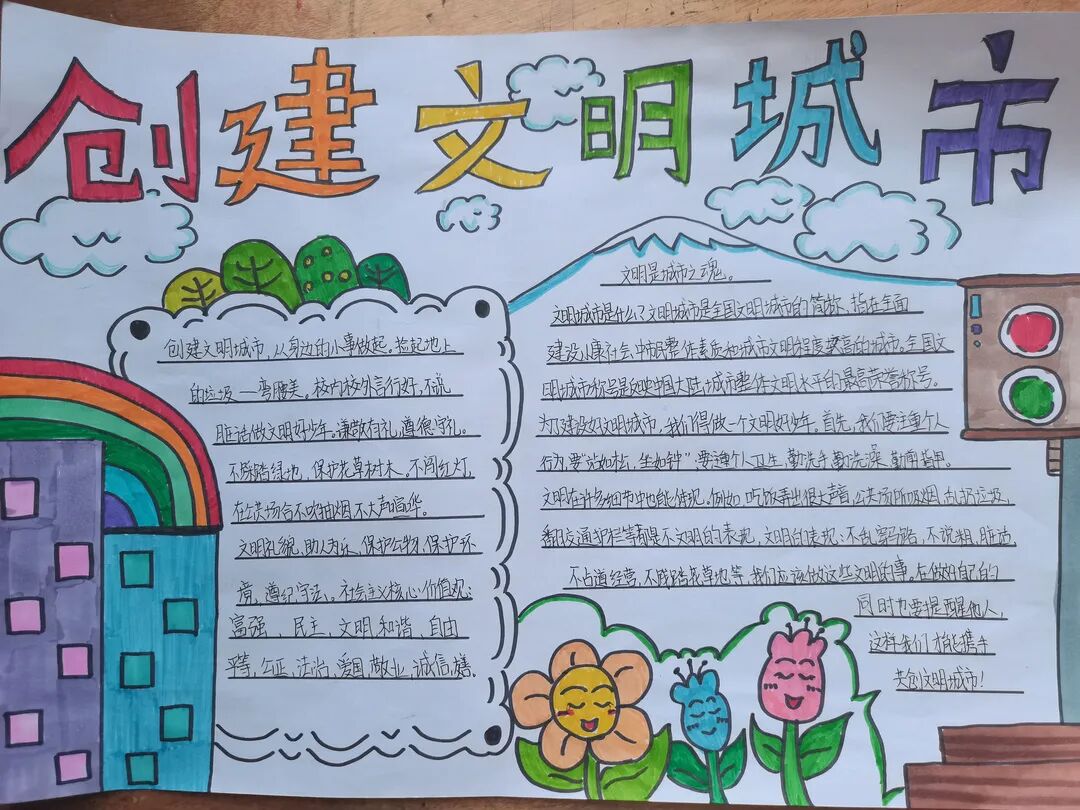 创建文明城市
创建文明城市，从身边的小事做起。捡起地上
的垃圾一弯腰美。校内校外言行好，不说
脏话做文明好少年。谦敬有礼，遵德守礼。
不踩踏绿地，保护花草树木，不闯红灯，
在公共场合不吸抽烟不大声喧哗。
文明礼貌，助人为乐，保护公物，保护环
境，遵纪守法。社会主义核心价值观：
富强、民主、文明、和谐、自由
平等、公正、法治、爱国、敬业、诚信、友善。
文明是城市之魂。
文明城市是什么？文明城市是全国文明城市的简称，指在全面
建设小康社会，中市民整体素质和城市文明程度较高的城市。全国文
明城市称号是反映中国大陆城市整体文明水平的最高荣誉称号。
为了建设好文明城市，我们得做一个文明好少年。首先，我们要注重个人
行为，要“站如松，坐如钟”，要注重个人卫生，勤洗手勤洗澡，勤剪指甲。
文明在许多细节中也能体现。例如吃饭弄出很大声音，公共场所吸烟，乱扔垃圾，
翻越交通护栏等都是不文明的表现，文明的表现：不乱穿马路，不说粗，脏话，
不占道经营，不践踏花草地等，我们应该做这些文明的事。在做好自己的
同时也要提醒他人，
这样我们才能携手
共创文明城市！